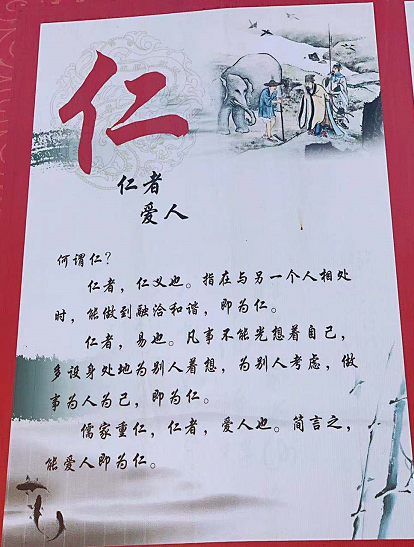 仁
仁者
爱人
何谓仁？
仁者，仁义也。指在与另一个人相处
时，能做到融洽和谐，即为仁。
仁者，易也。凡事不能光想着自己，
多设身处地为别人着想，为别人考虑，做
事为人为己，即为仁。
儒家重仁，仁者，爱人也。简言之，
能爱人即为仁。